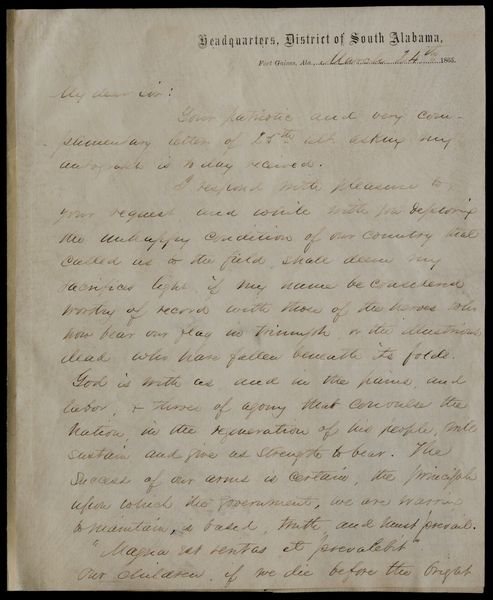 Headquarters, District of South Alabama,
Fort Gaines, Ala., March 24th 1865.
My dear sir:
Your patriotic and very com-
plimentary letter of 25th ult asking my
autograph is to day received.
I respond with pleasure to
your request and while with you deploring
the unhappy condition of our country that
called us to the field shall deem my
sacrifices light if my name be considered
worthy of record with those of the heroes who
now bear our flag in triumph or the illustrious
dead who have fallen beneath its folds.
God is with us and in the pains, and
labor, & throes of agony that convulse the
Nation, in the regeneration of his people, will
sustain and give us strength to bear. The
success of our arms is certain, the principle
upon which the government, we are warring
to maintain, is based, truth and must prevail.
"Magna est veritas et prevalebit"
Our children, if we die before the bright